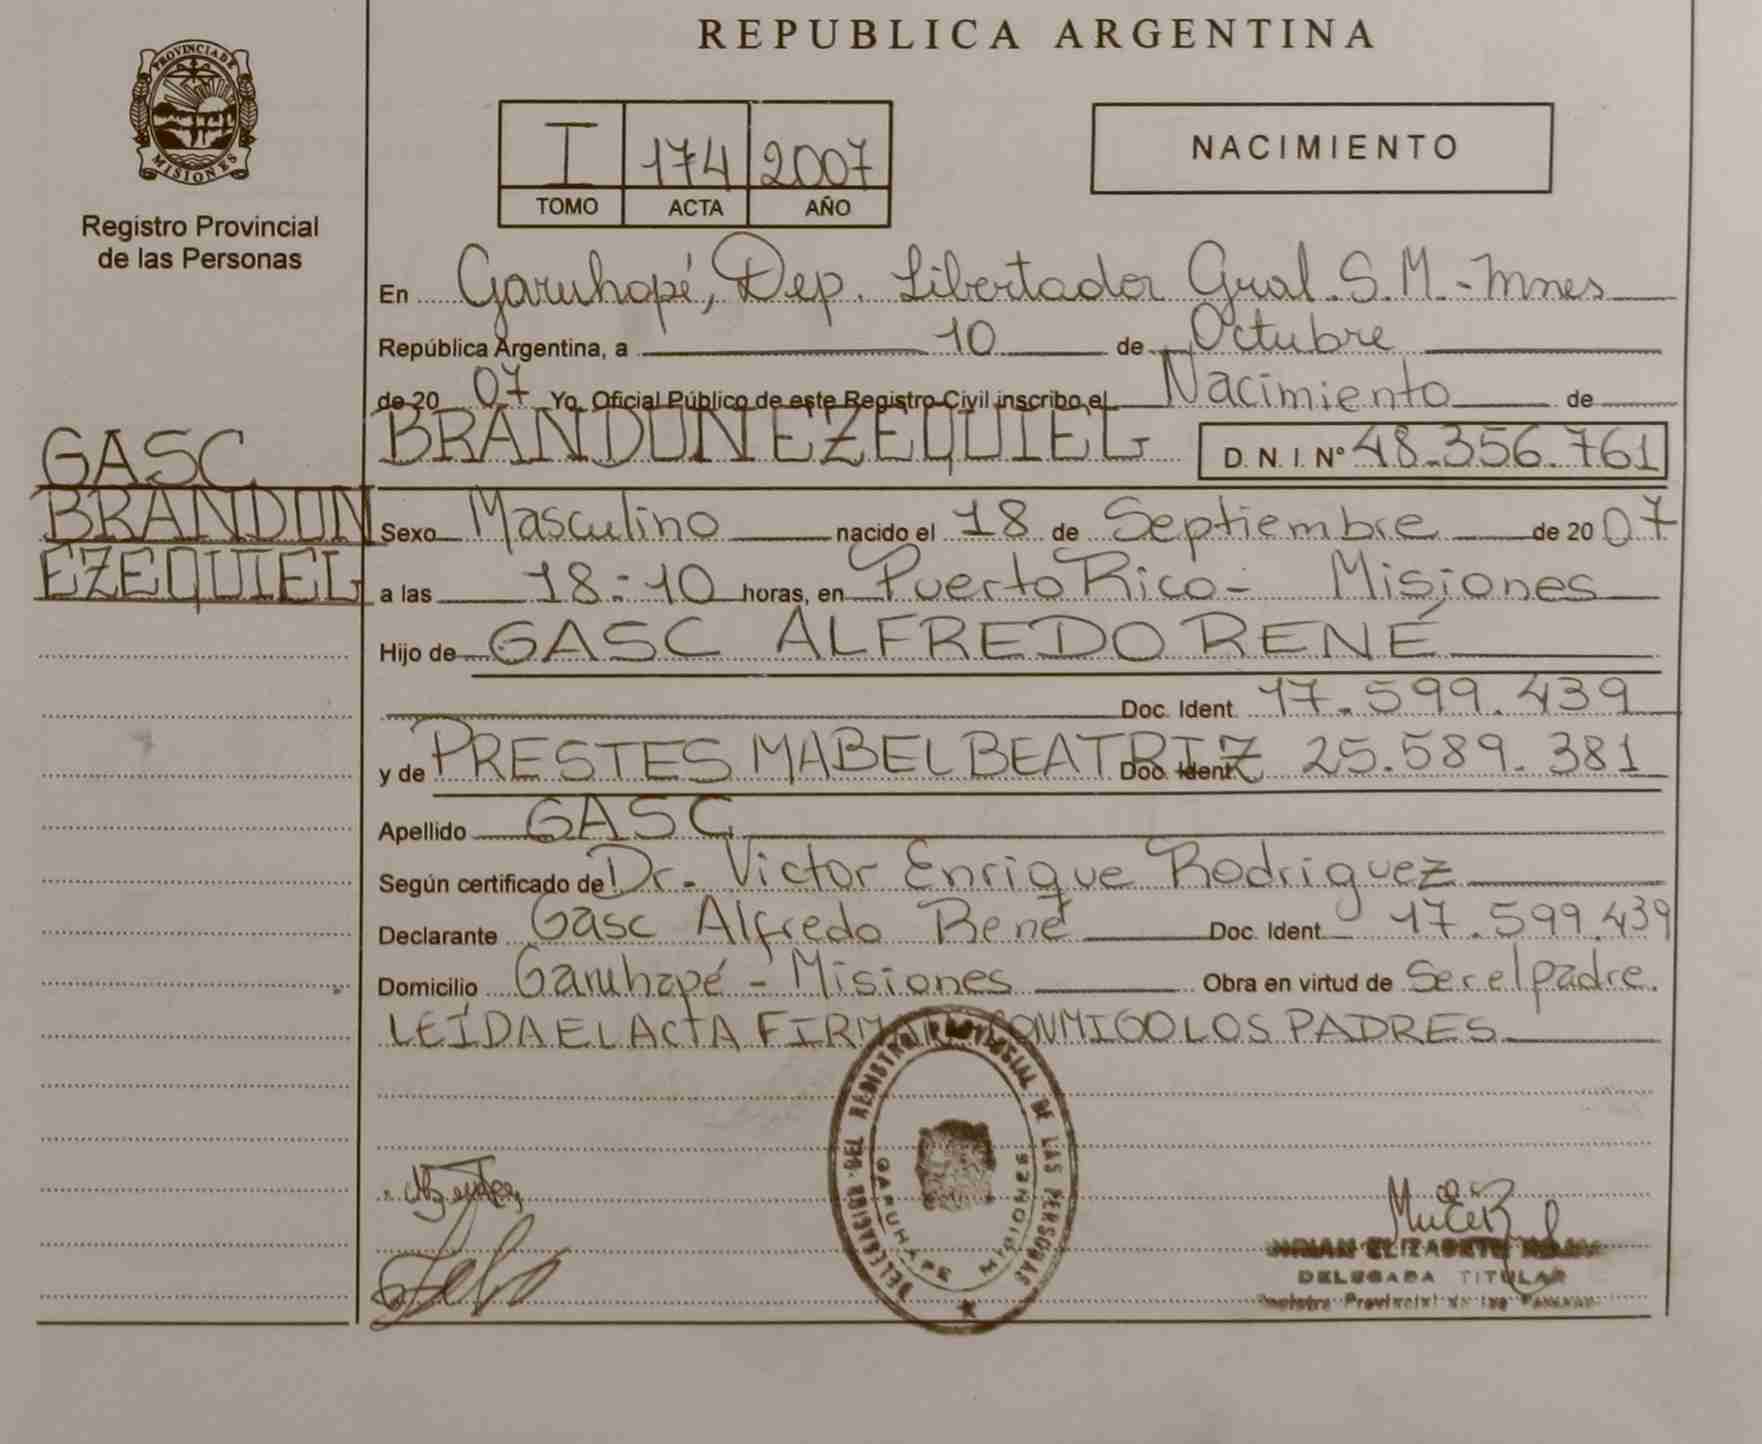 REPUBLICA ARGENTINA
PROVINCIA DE
MISIONES
Registro Provincial
de las Personas
I 174 2007
TOMO ACTA AÑO
NACIMIENTO
En Garuhapé, Dep. Libertador Gral. S.M. - Mnes
República Argentina, a 10 de Octubre
de 20 07 Yo, Oficial Público de este Registro Civil inscribo el Nacimiento de
BRANDON EZEQUIEL D.N.I. Nº 48.356.761
GASC
BRANDON
EZEQUIEL
Sexo Masculino nacido el 18 de Septiembre de 20 07
a las 18:10 horas, en Puerto Rico - Misiones
Hijo de GASC ALFREDO RENÉ
Doc. Ident. 17.599.439
y de PRESTES MABEL BEATRIZ Doc. Ident. 25.589.381
Apellido GASC
Según certificado de Dr. Victor Enrique Rodriguez
Declarante Gasc Alfredo René Doc. Ident. 17.599.439
Domicilio Garuhapé - Misiones Obra en virtud de Ser el padre.
LEÍDA EL ACTA FIRMAN CONMIGO LOS PADRES
DELEGACION DEL REGISTRO PROVINCIAL DE LAS PERSONAS
GARUHAPE MISIONES
ELIZABETH
DELEGADA TITULAR
Registro Provincial de las Personas